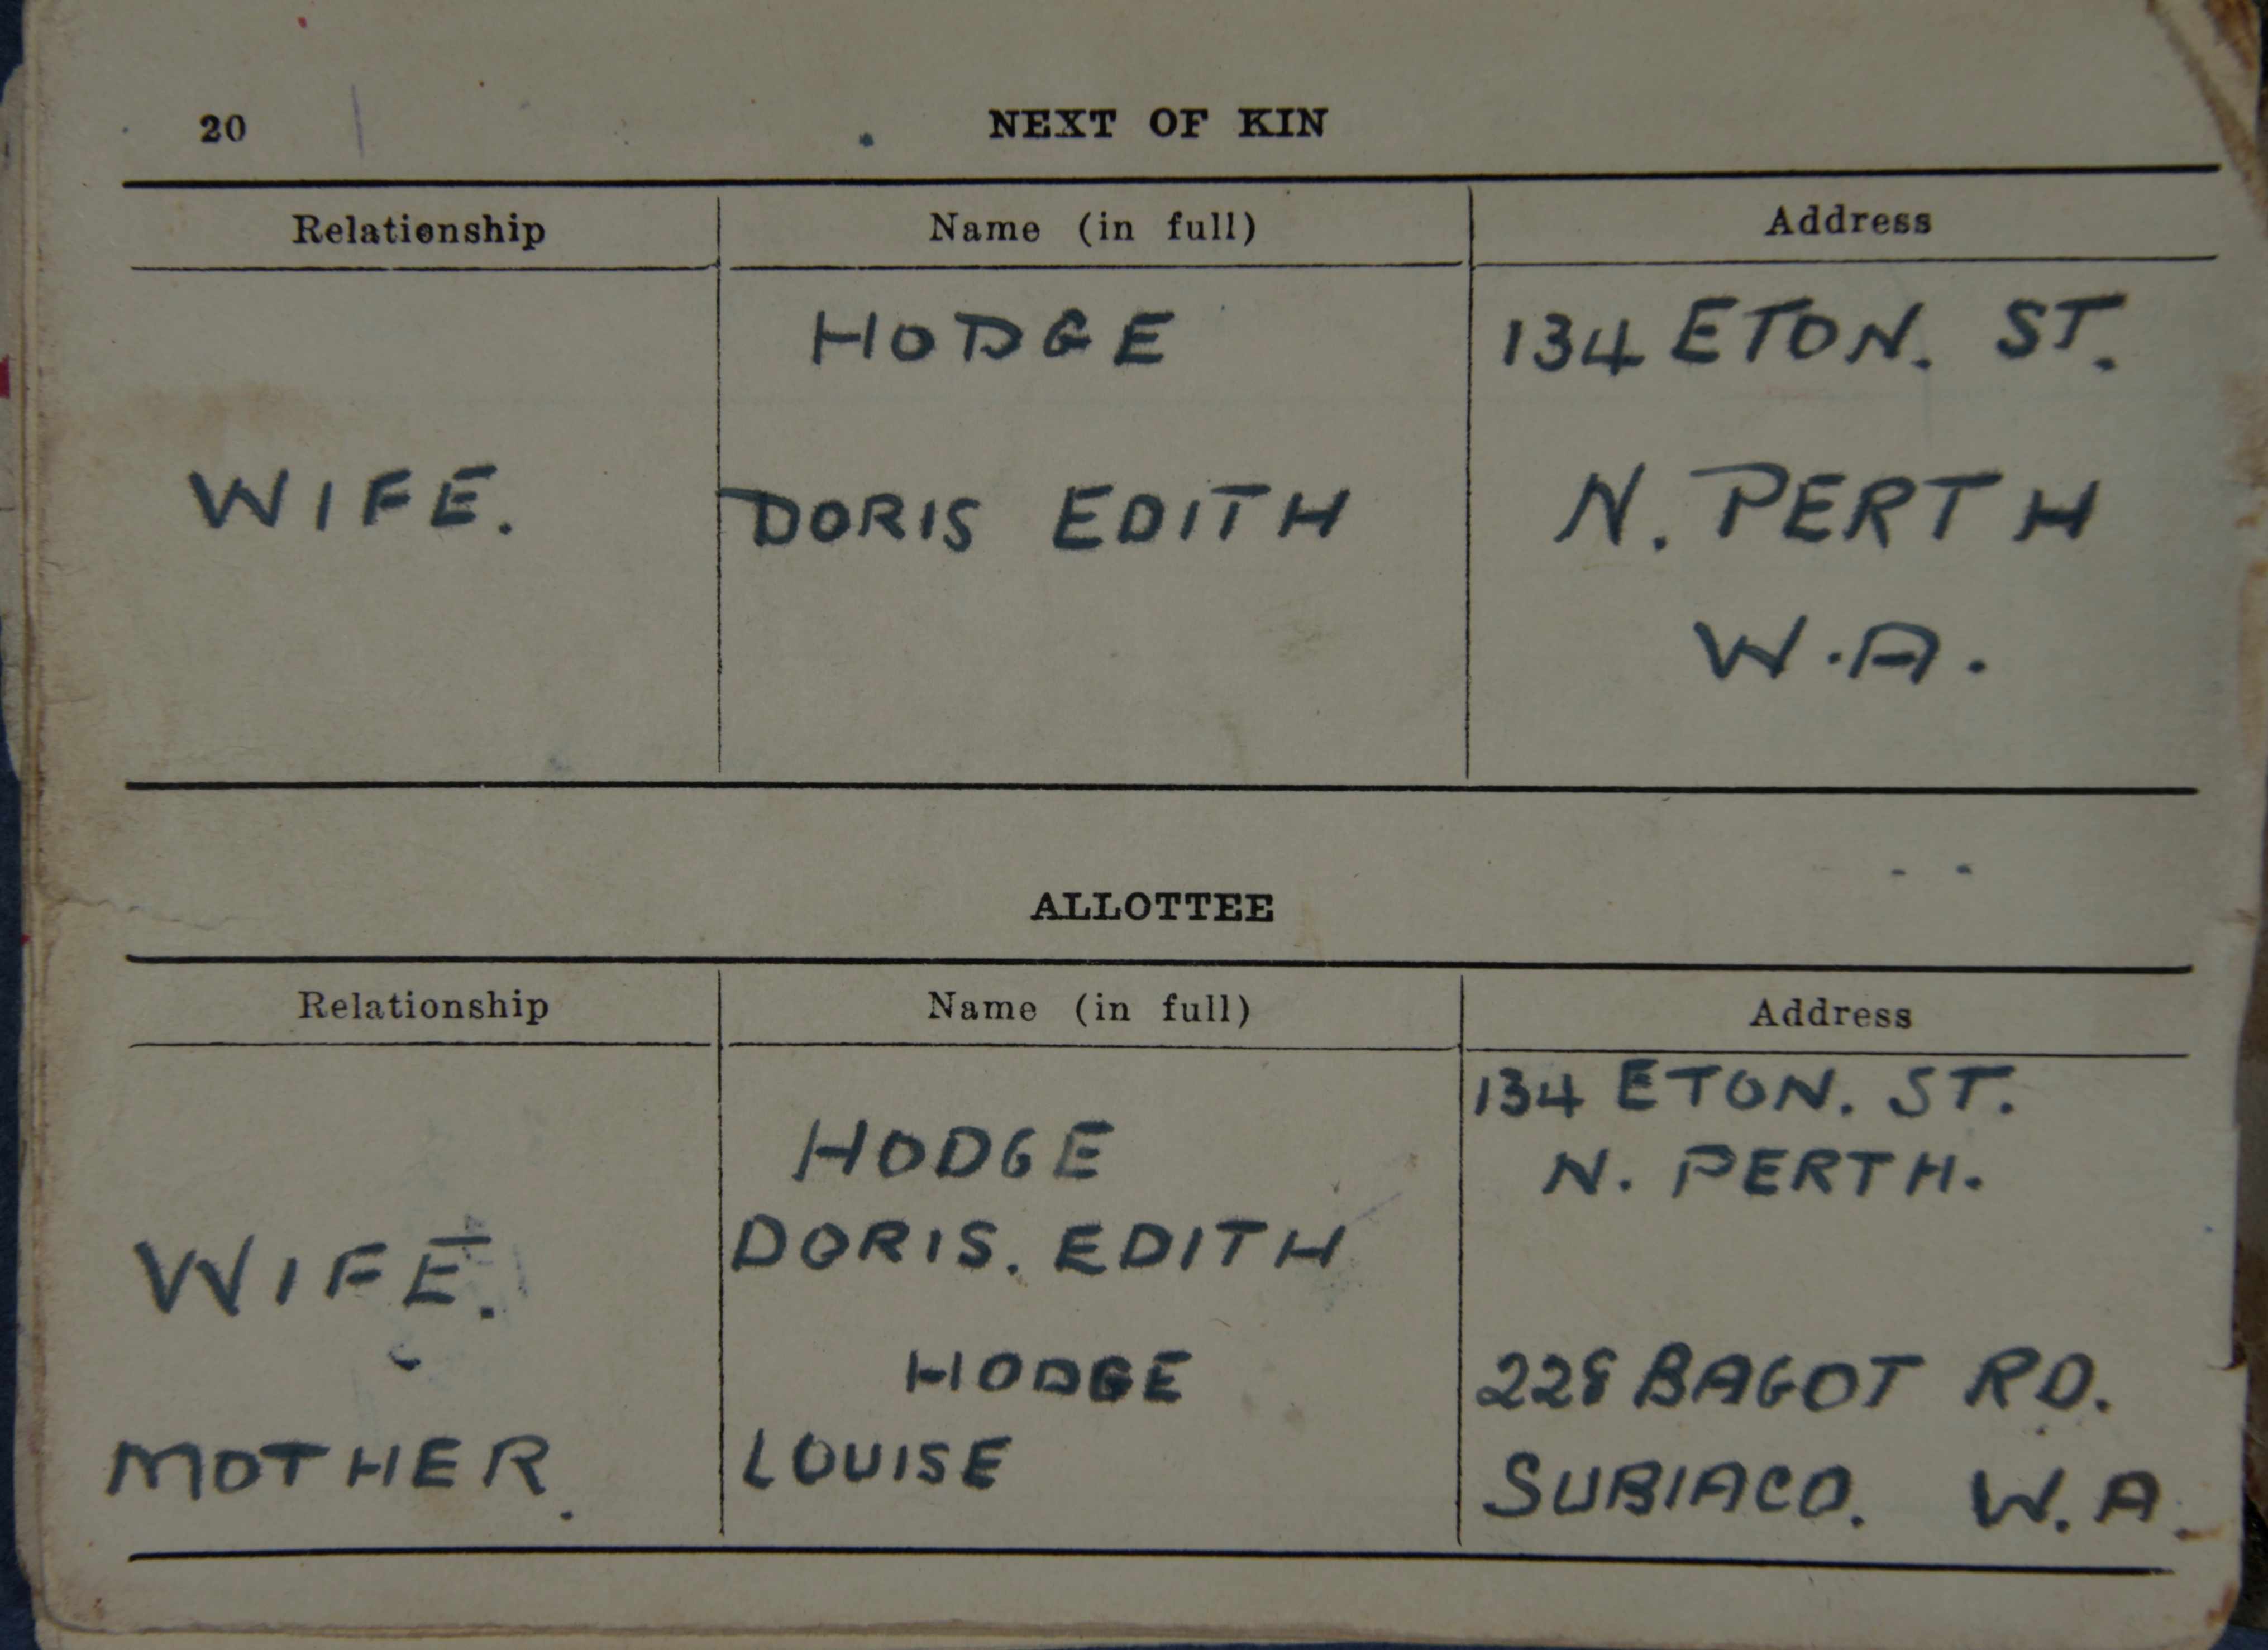 20 NEXT OF KIN
Relationship Name (in full) Address
HODGE 134 ETON. ST.
WIFE. DORIS EDITH N. PERTH
W.A.
ALLOTTEE
Relationship Name (in full) Address
134 ETON. ST.
HODGE N. PERTH.
WIFE. DORIS. EDITH
HODGE 228 BAGOT RD.
MOTHER. LOUISE SUBIACO. W.A.